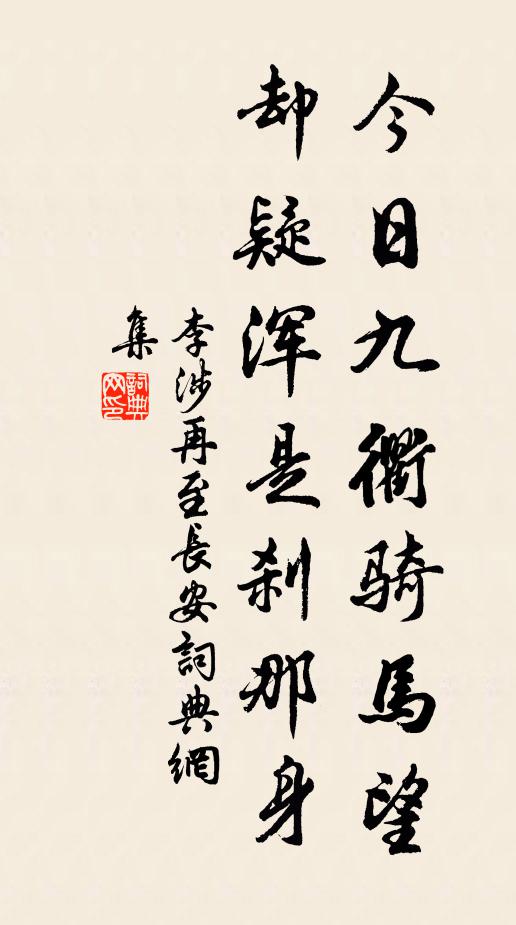 今日九衢骑馬望
却疑浑是刹那身
李涉再至長安詞典網
集
詞典
网印